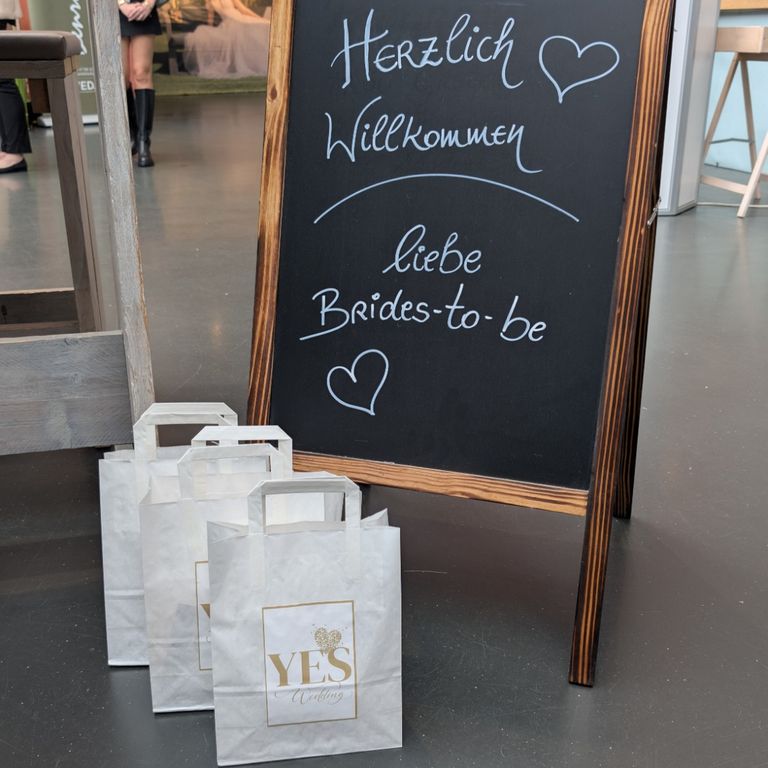 Herzlich
Willkommen
liebe
Brides-to-be
YES
Wedding